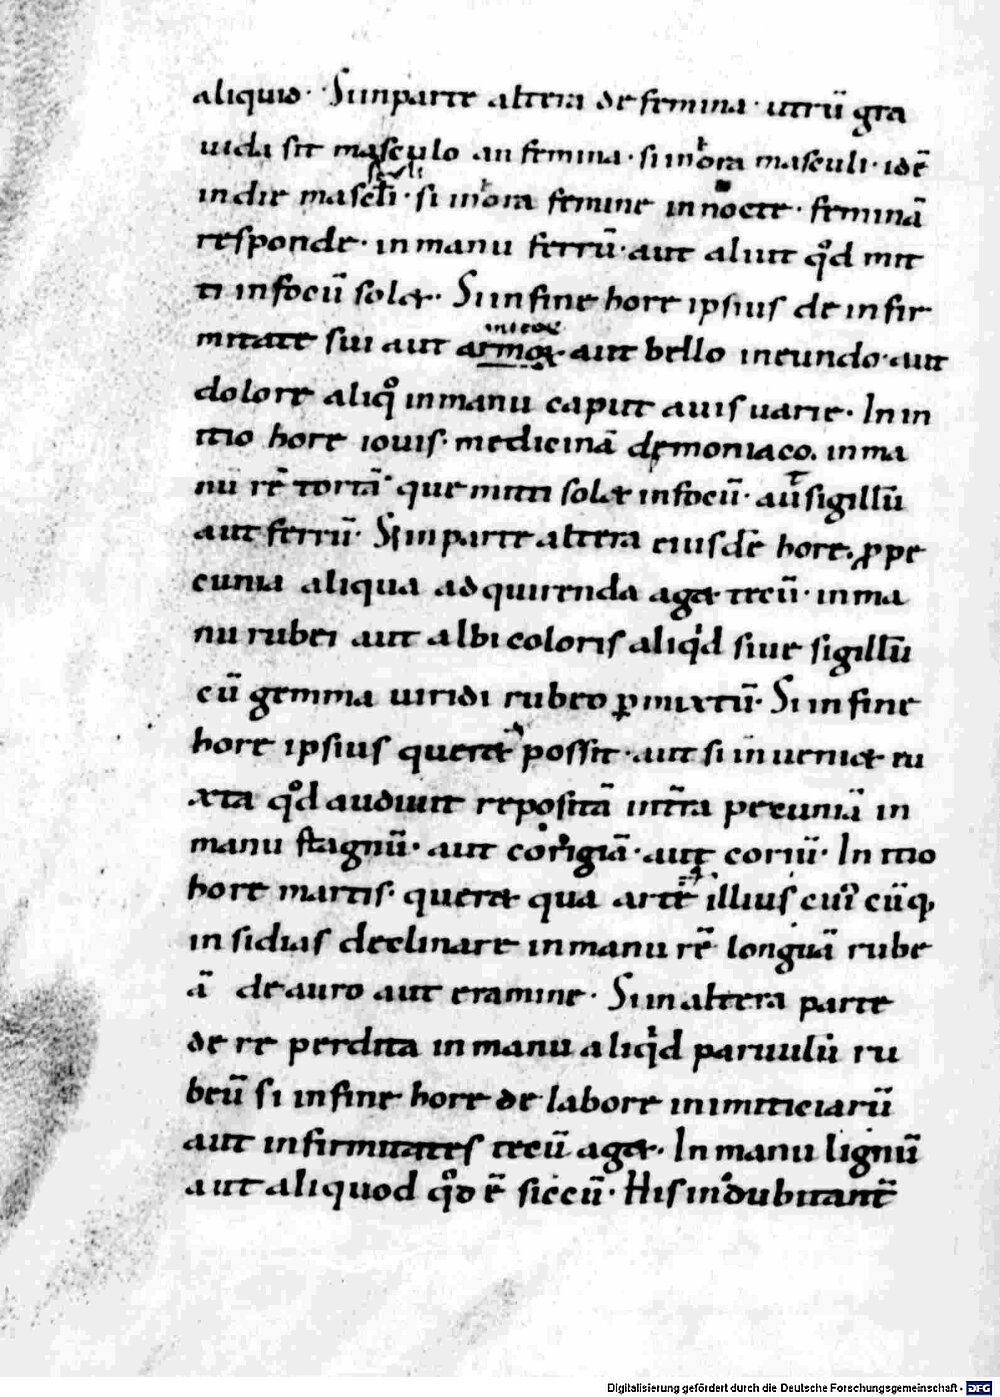 aliquid. Si in parte altera de femina. utrū gra
uida sit masculo an femina. si in hora masculi. idē
in die masculi. si in hora femine in nocte. feminā
responde. in manu ferrū. aut aliut qd mit
ti in focū solet. Si in fine hore ipsius de infir
mitate sui aut armor aut bello ineundo. aut
dolore aliqo in manu caput auis uarie. In in
itio hore iouis. medicinā demoniaco. in ma
nu rē tortā. que mitti solet in focū. aut sigillū
aut ferrū. Si in parte altera eiusdē hore. p pe
cunia aliqua adquirenda aget tecū. in ma
nu rubei aut albi coloris aliqd siue sigillū
cū gemma uiridi rubeo pmixtū. Si in fine
hore ipsius queret possit. aut si inueniet iu
xta qd audiuit repositā intra pecuniā in
manu stagnū. aut corrigiā. aut coriū. In itio
hore martis. queret qua arte illius cui cūq
insidias declinare in manu rē longuā rube
ā de auro aut eramine. Si in altera parte
de re perdita in manu aliqd paruulū ru
beū si in fine hore de labore inimiciarū
aut infirmitates tecū aget. In manu lignū
aut aliquod qd ē siccū. His indubitant
Digitalisierung gefördert durch die Deutsche Forschungsgemeinschaft - DFG